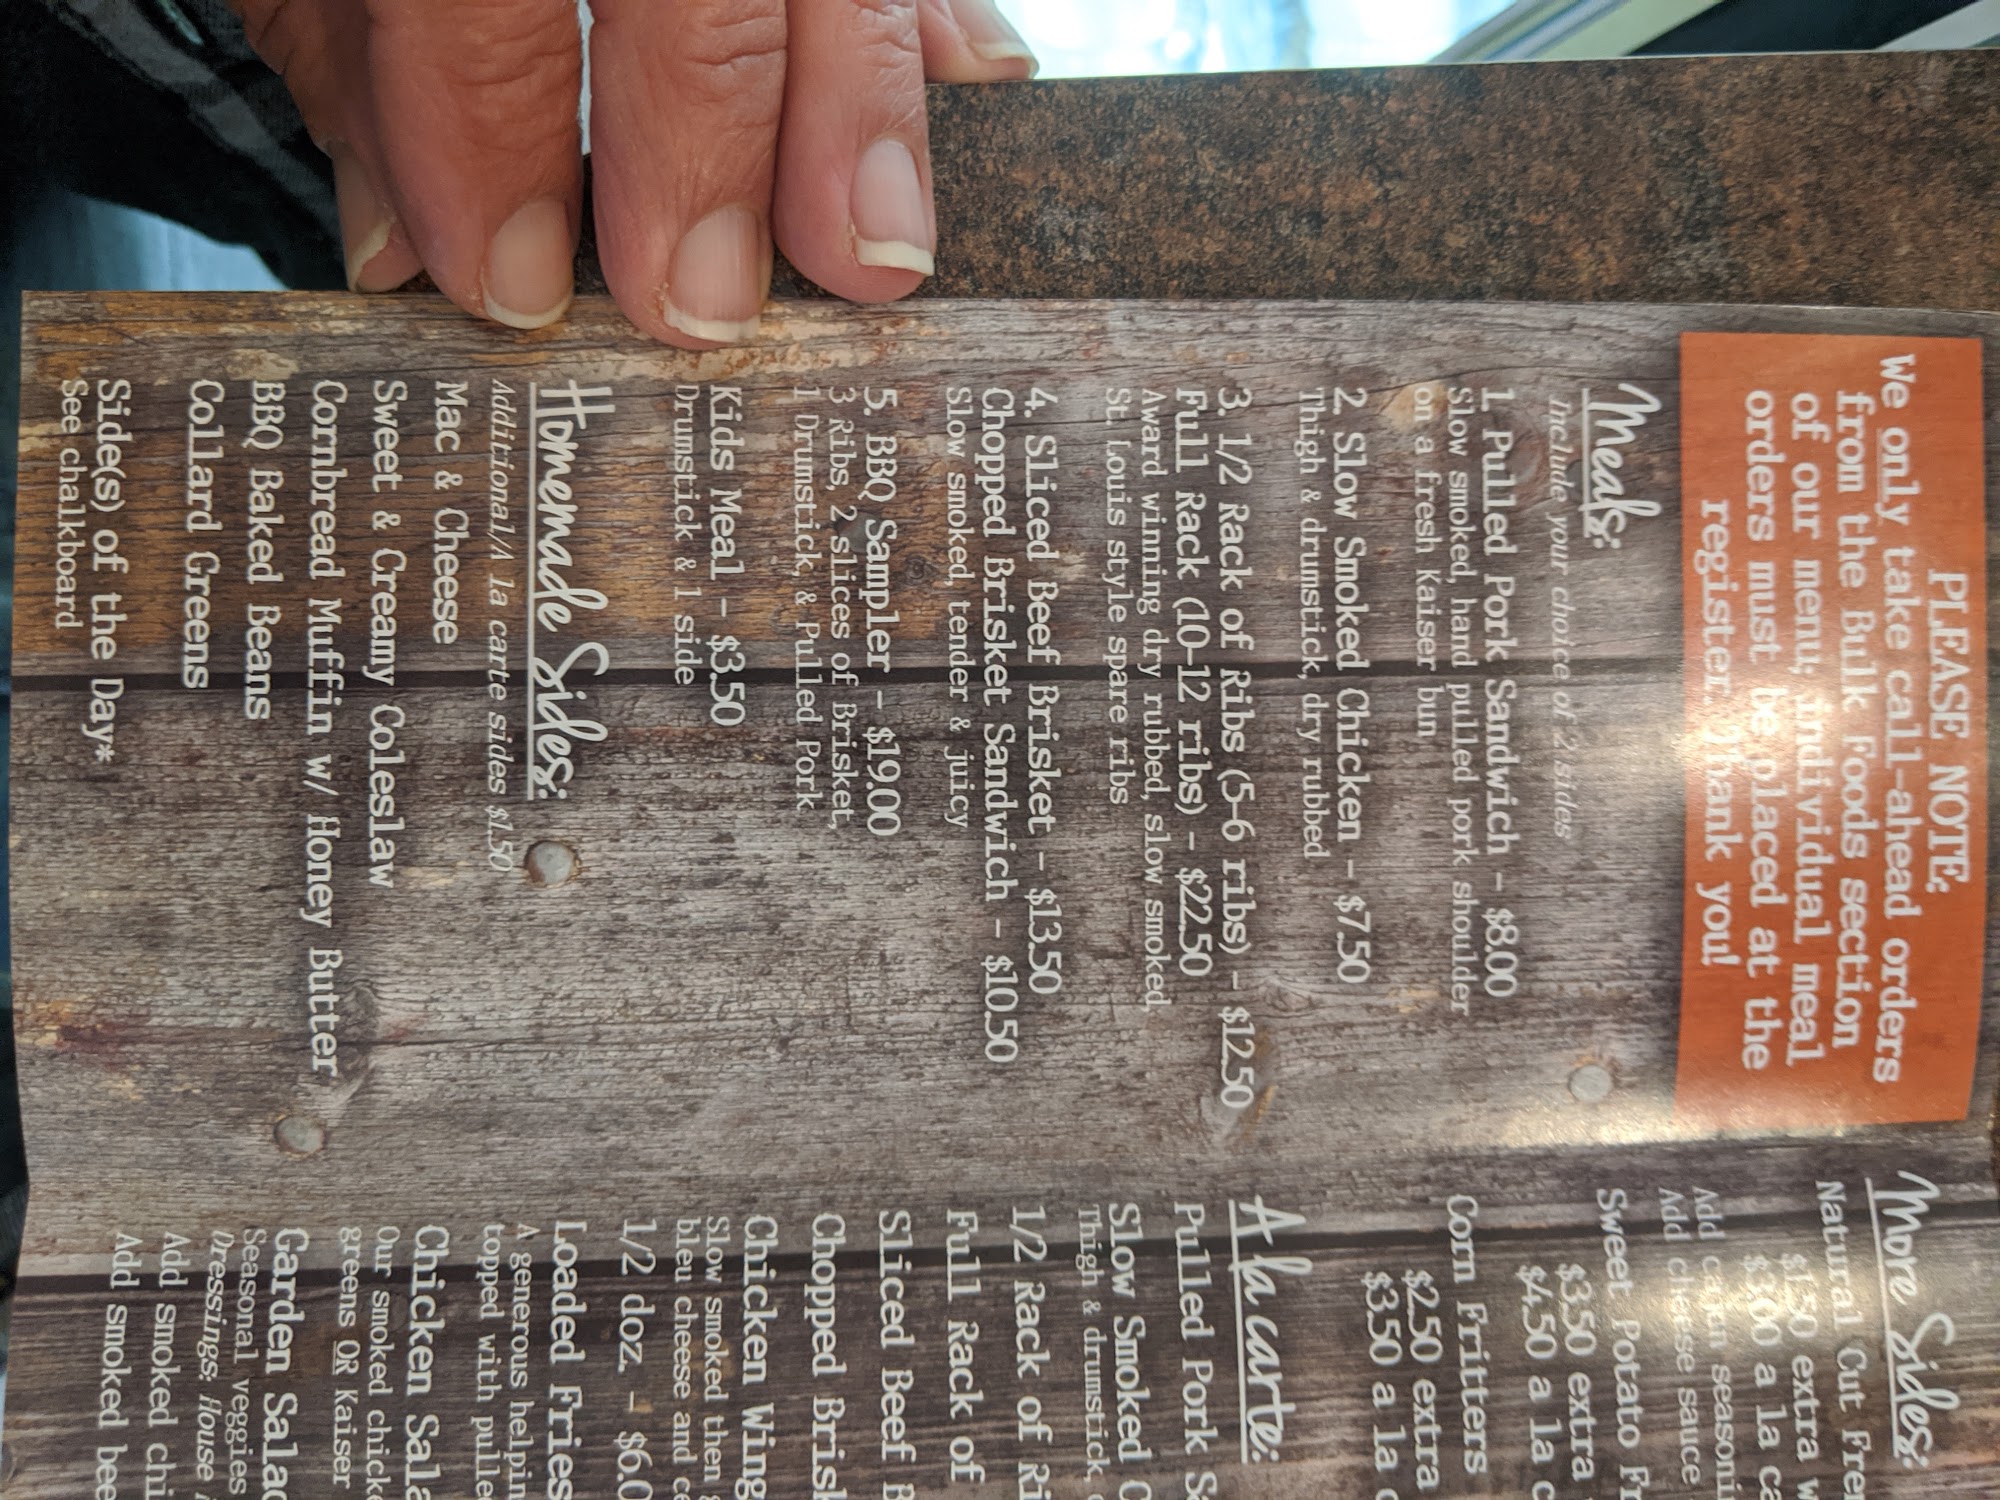 PLEASE NOTE,
We only take call-ahead orders
from the Bulk Foods section
of our menu; individual meal
orders must be placed at the
register. Thank you!
Meals:
Include your choice of 2 sides
1. Pulled Pork Sandwich - $8.00
Slow smoked, hand pulled pork shoulder
on a fresh Kaiser bun
2. Slow Smoked Chicken - $7.50
Thigh & drumstick, dry rubbed
3. 1/2 Rack of Ribs (5-6 ribs) - $12.50
Full Rack (10-12 ribs) - $22.50
Award winning dry rubbed, slow smoked,
St. Louis style spare ribs
4. Sliced Beef Brisket - $13.50
Chopped Brisket Sandwich - $10.50
Slow smoked, tender & juicy
5. BBQ Sampler - $19.00
3 Ribs, 2 slices of Brisket,
1 Drumstick, & Pulled Pork
Kids Meal - $3.50
Drumstick & 1 side
Homemade Sides:
Additional/A la carte sides $1.50
Mac & Cheese
Sweet & Creamy Coleslaw
Cornbread Muffin w/ Honey Butter
BBQ Baked Beans
Collard Greens
Side(s) of the Day*
See chalkboard
More Sides:
Natural Cut
$1.50 extra
$3.00 a la
Add cajun
Add cheese sauce
Sweet Potato
$3.50 extra
$4.50 a la
Corn Fritters
$2.50 extra
$3.50 a la
A la carte:
Pulled Pork
Slow Smoked
Thigh & drumstick,
1/2 Rack of
Full Rack of
Sliced Beef
Chopped
Chicken
Slow smoked then
bleu cheese and
1/2 doz. - $6.0
Loaded Fries
A generous
topped with
Chicken
Our smoked
greens OR Kaiser
Garden
Seasonal veggies
Dressings: House
Add smoked
Add smoked